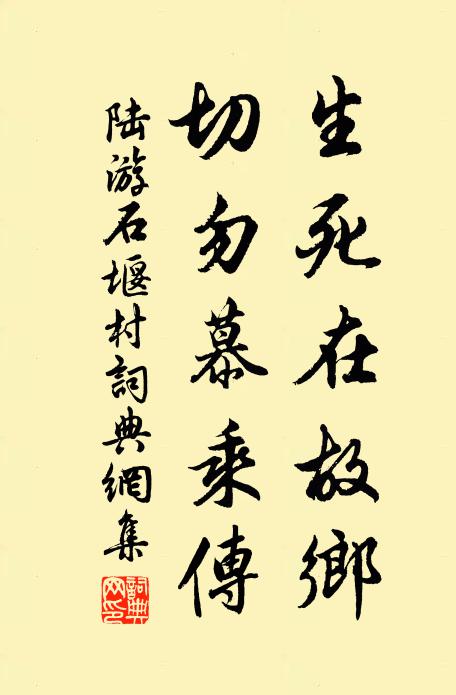 生死在故鄉
切勿慕乘傳
陆游石堰村詞典網集
詞典网印